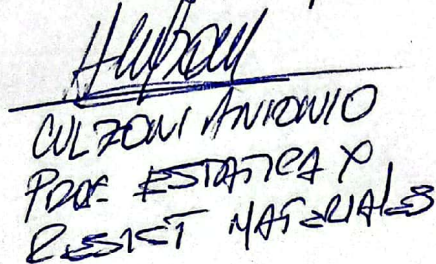 CULZONI ANTONIO
PROF ESTATICA Y
RESIST MATERIALES